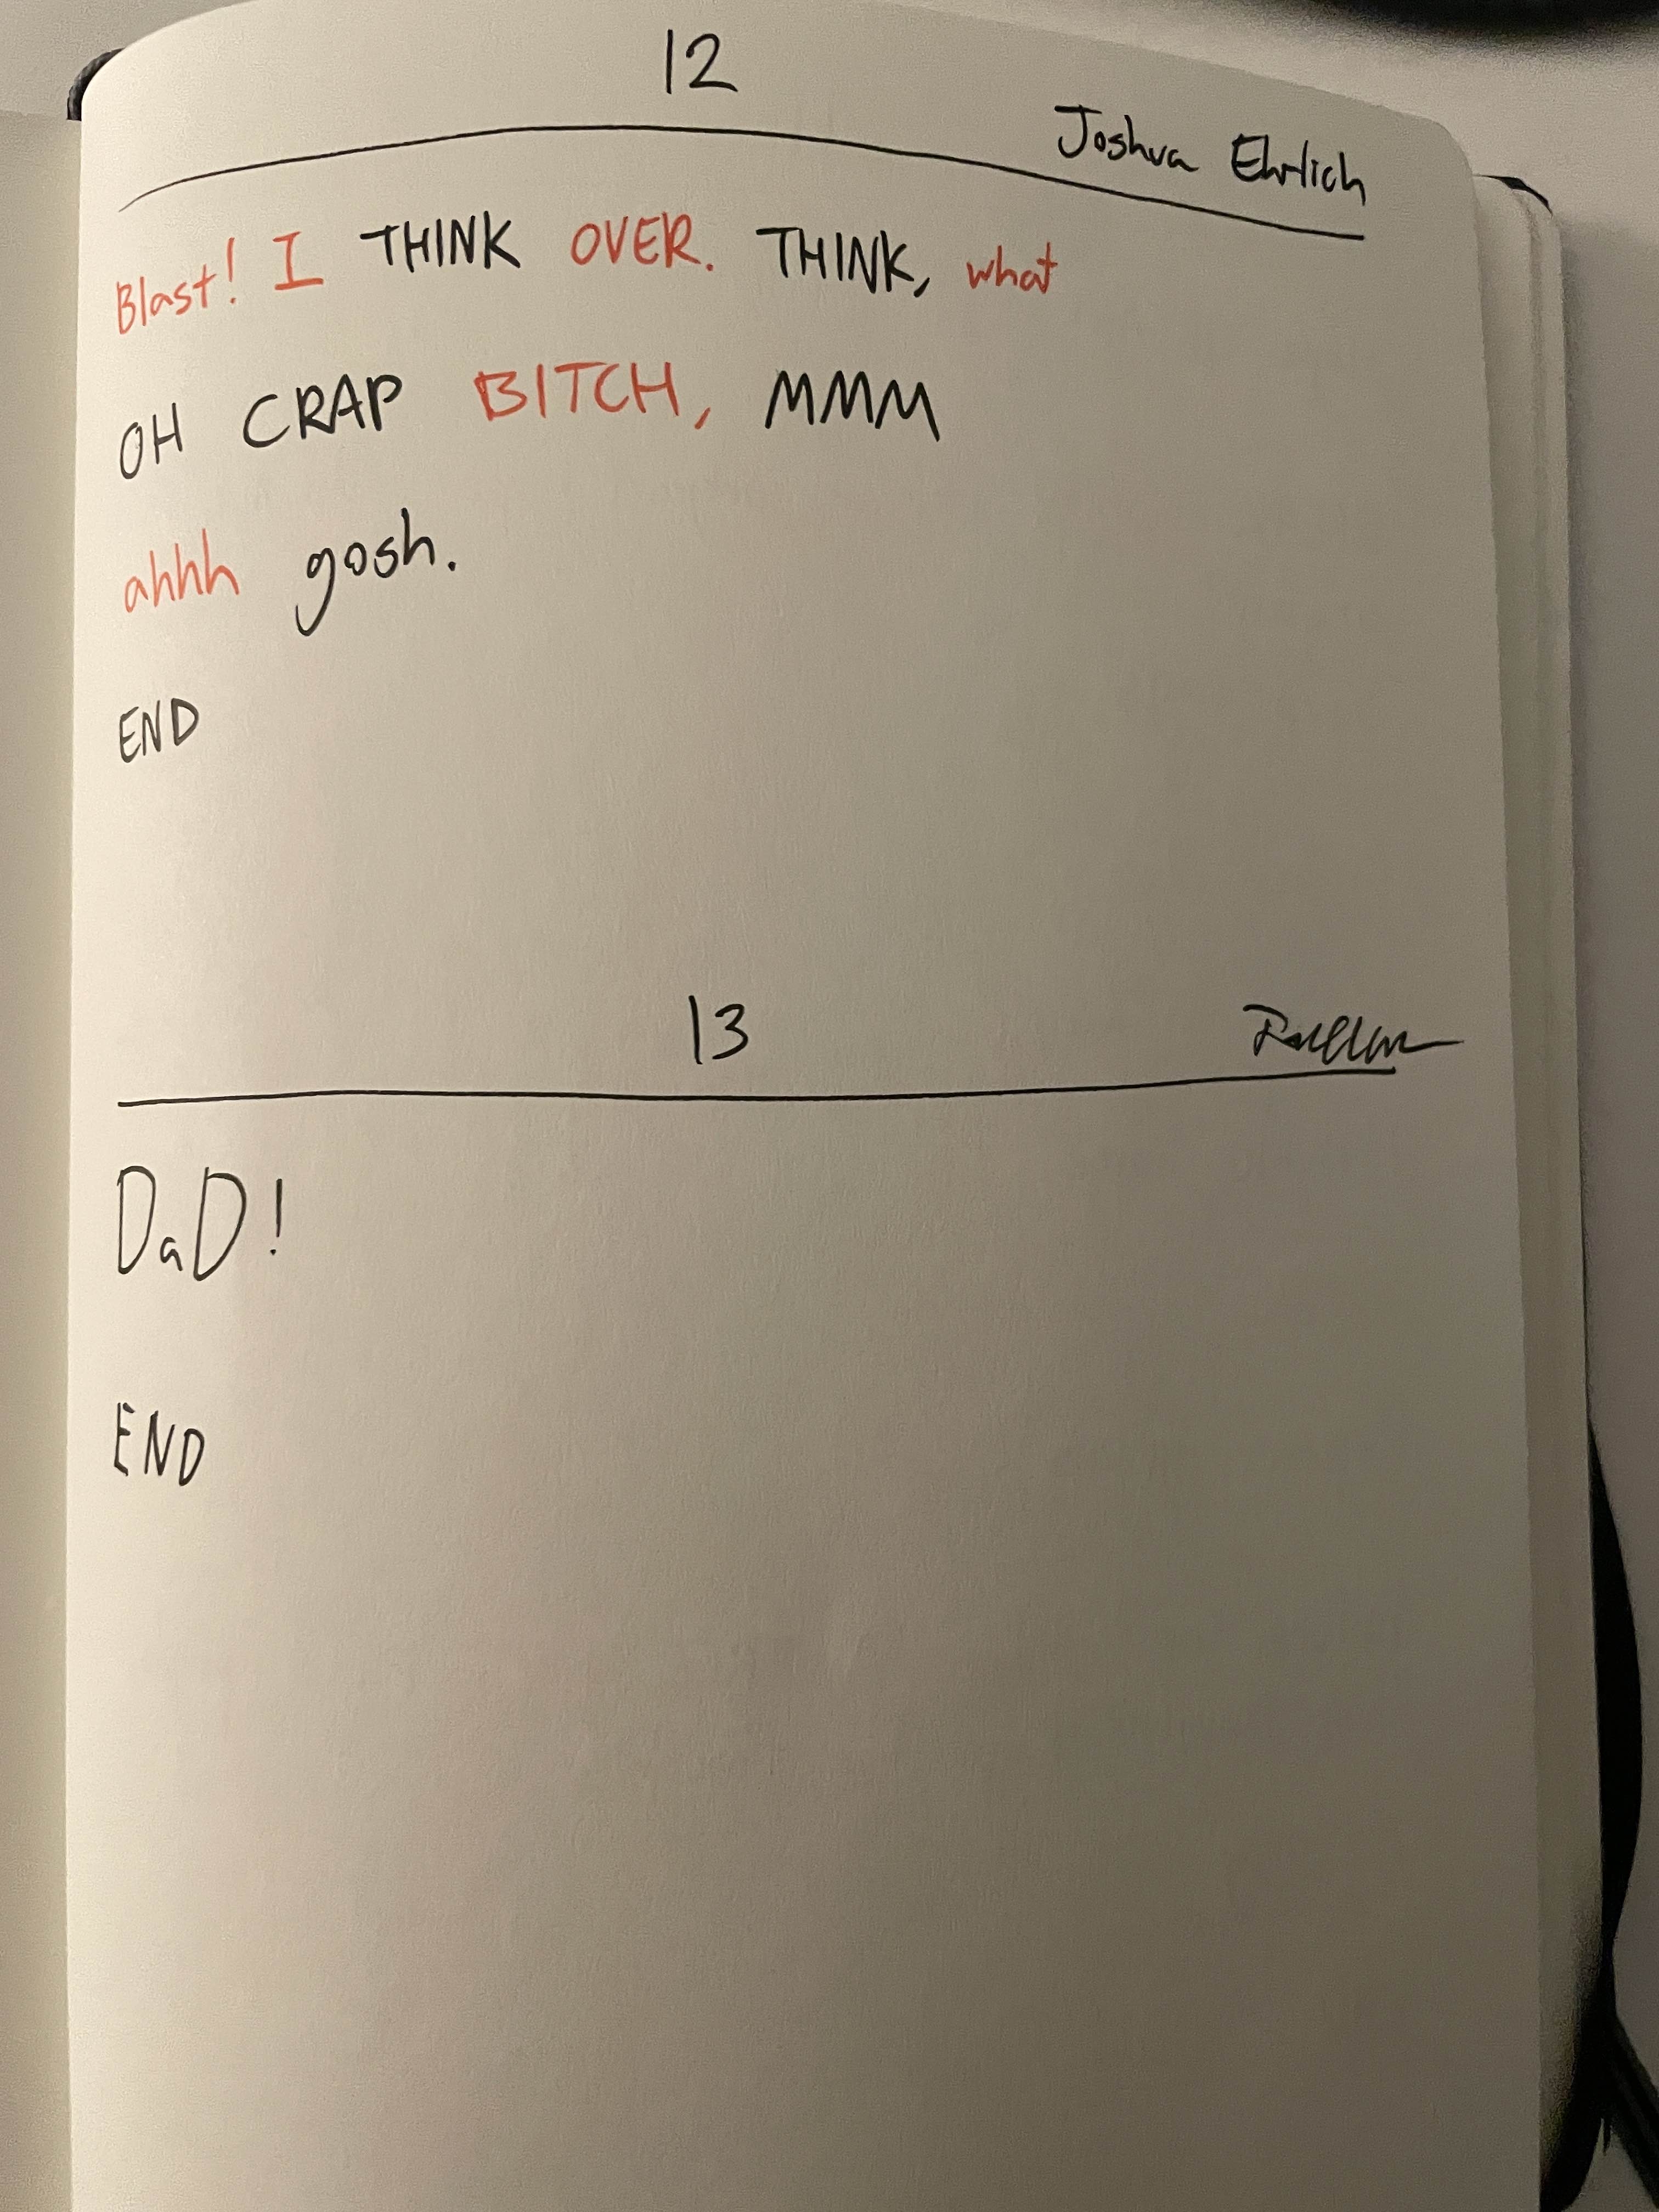 12
Joshua Ehrlich
Blast! I THINK OVER. THINK, what
OH CRAP BITCH, MMM
ahhh gosh.
END
13
DaD!
END